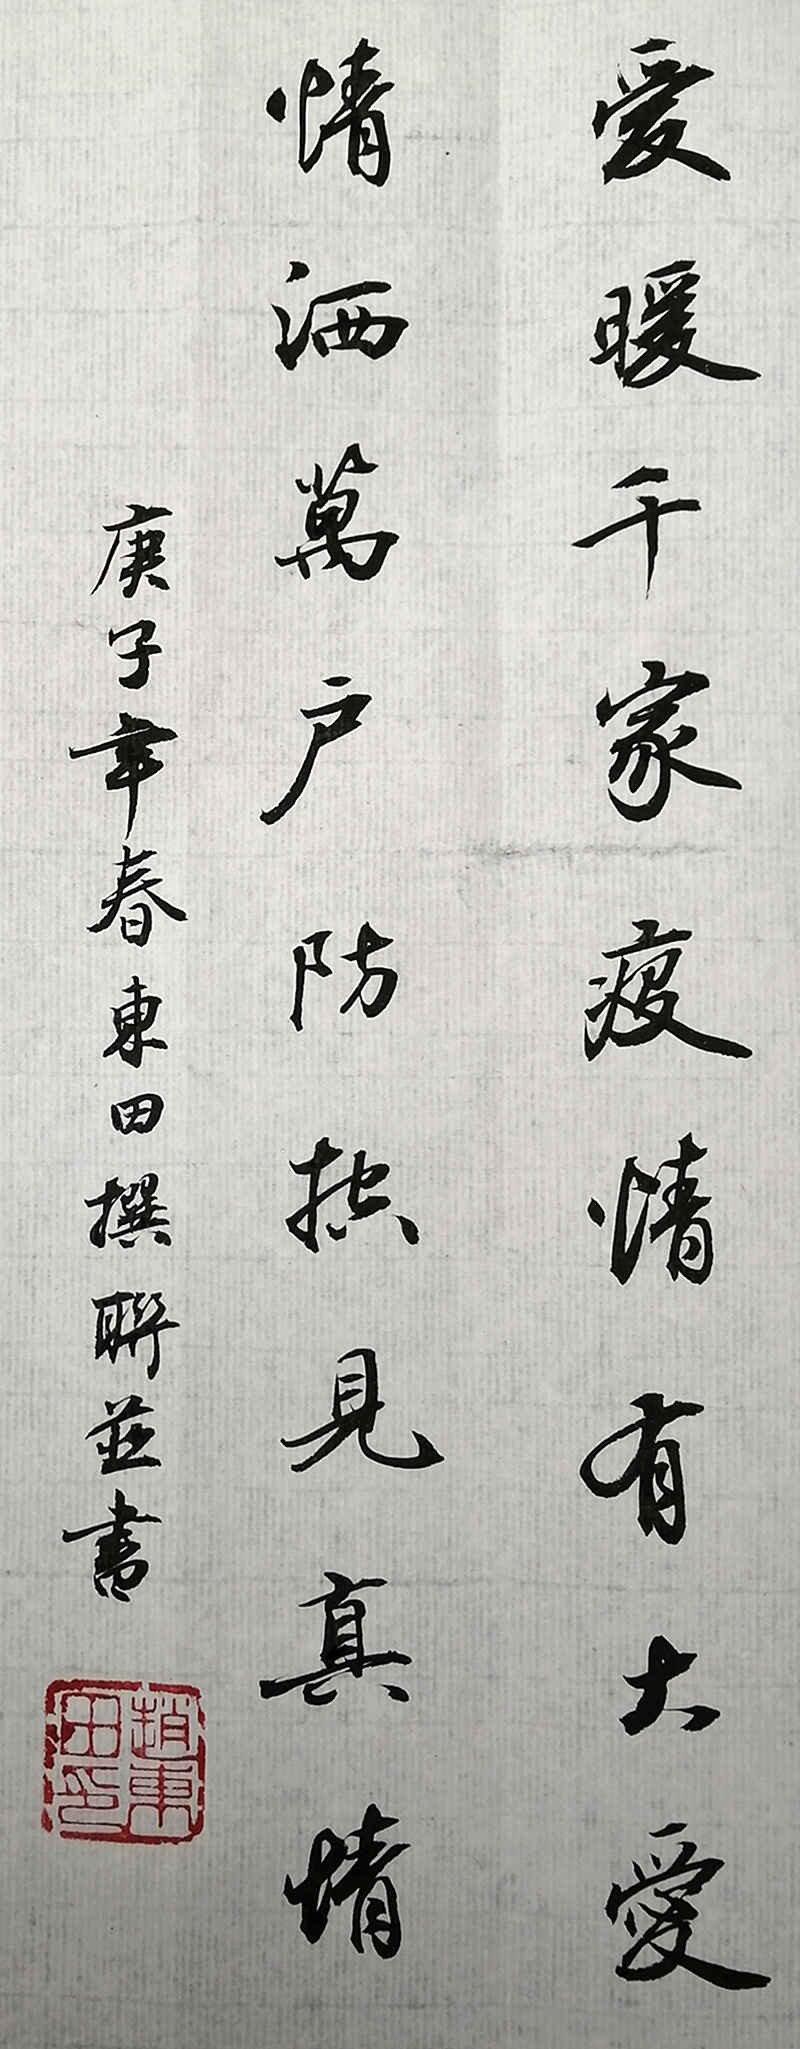 愛暖千家疫情有大愛
情洒萬戶防控見真情
庚子年春東田撰聯並書
趙東田印